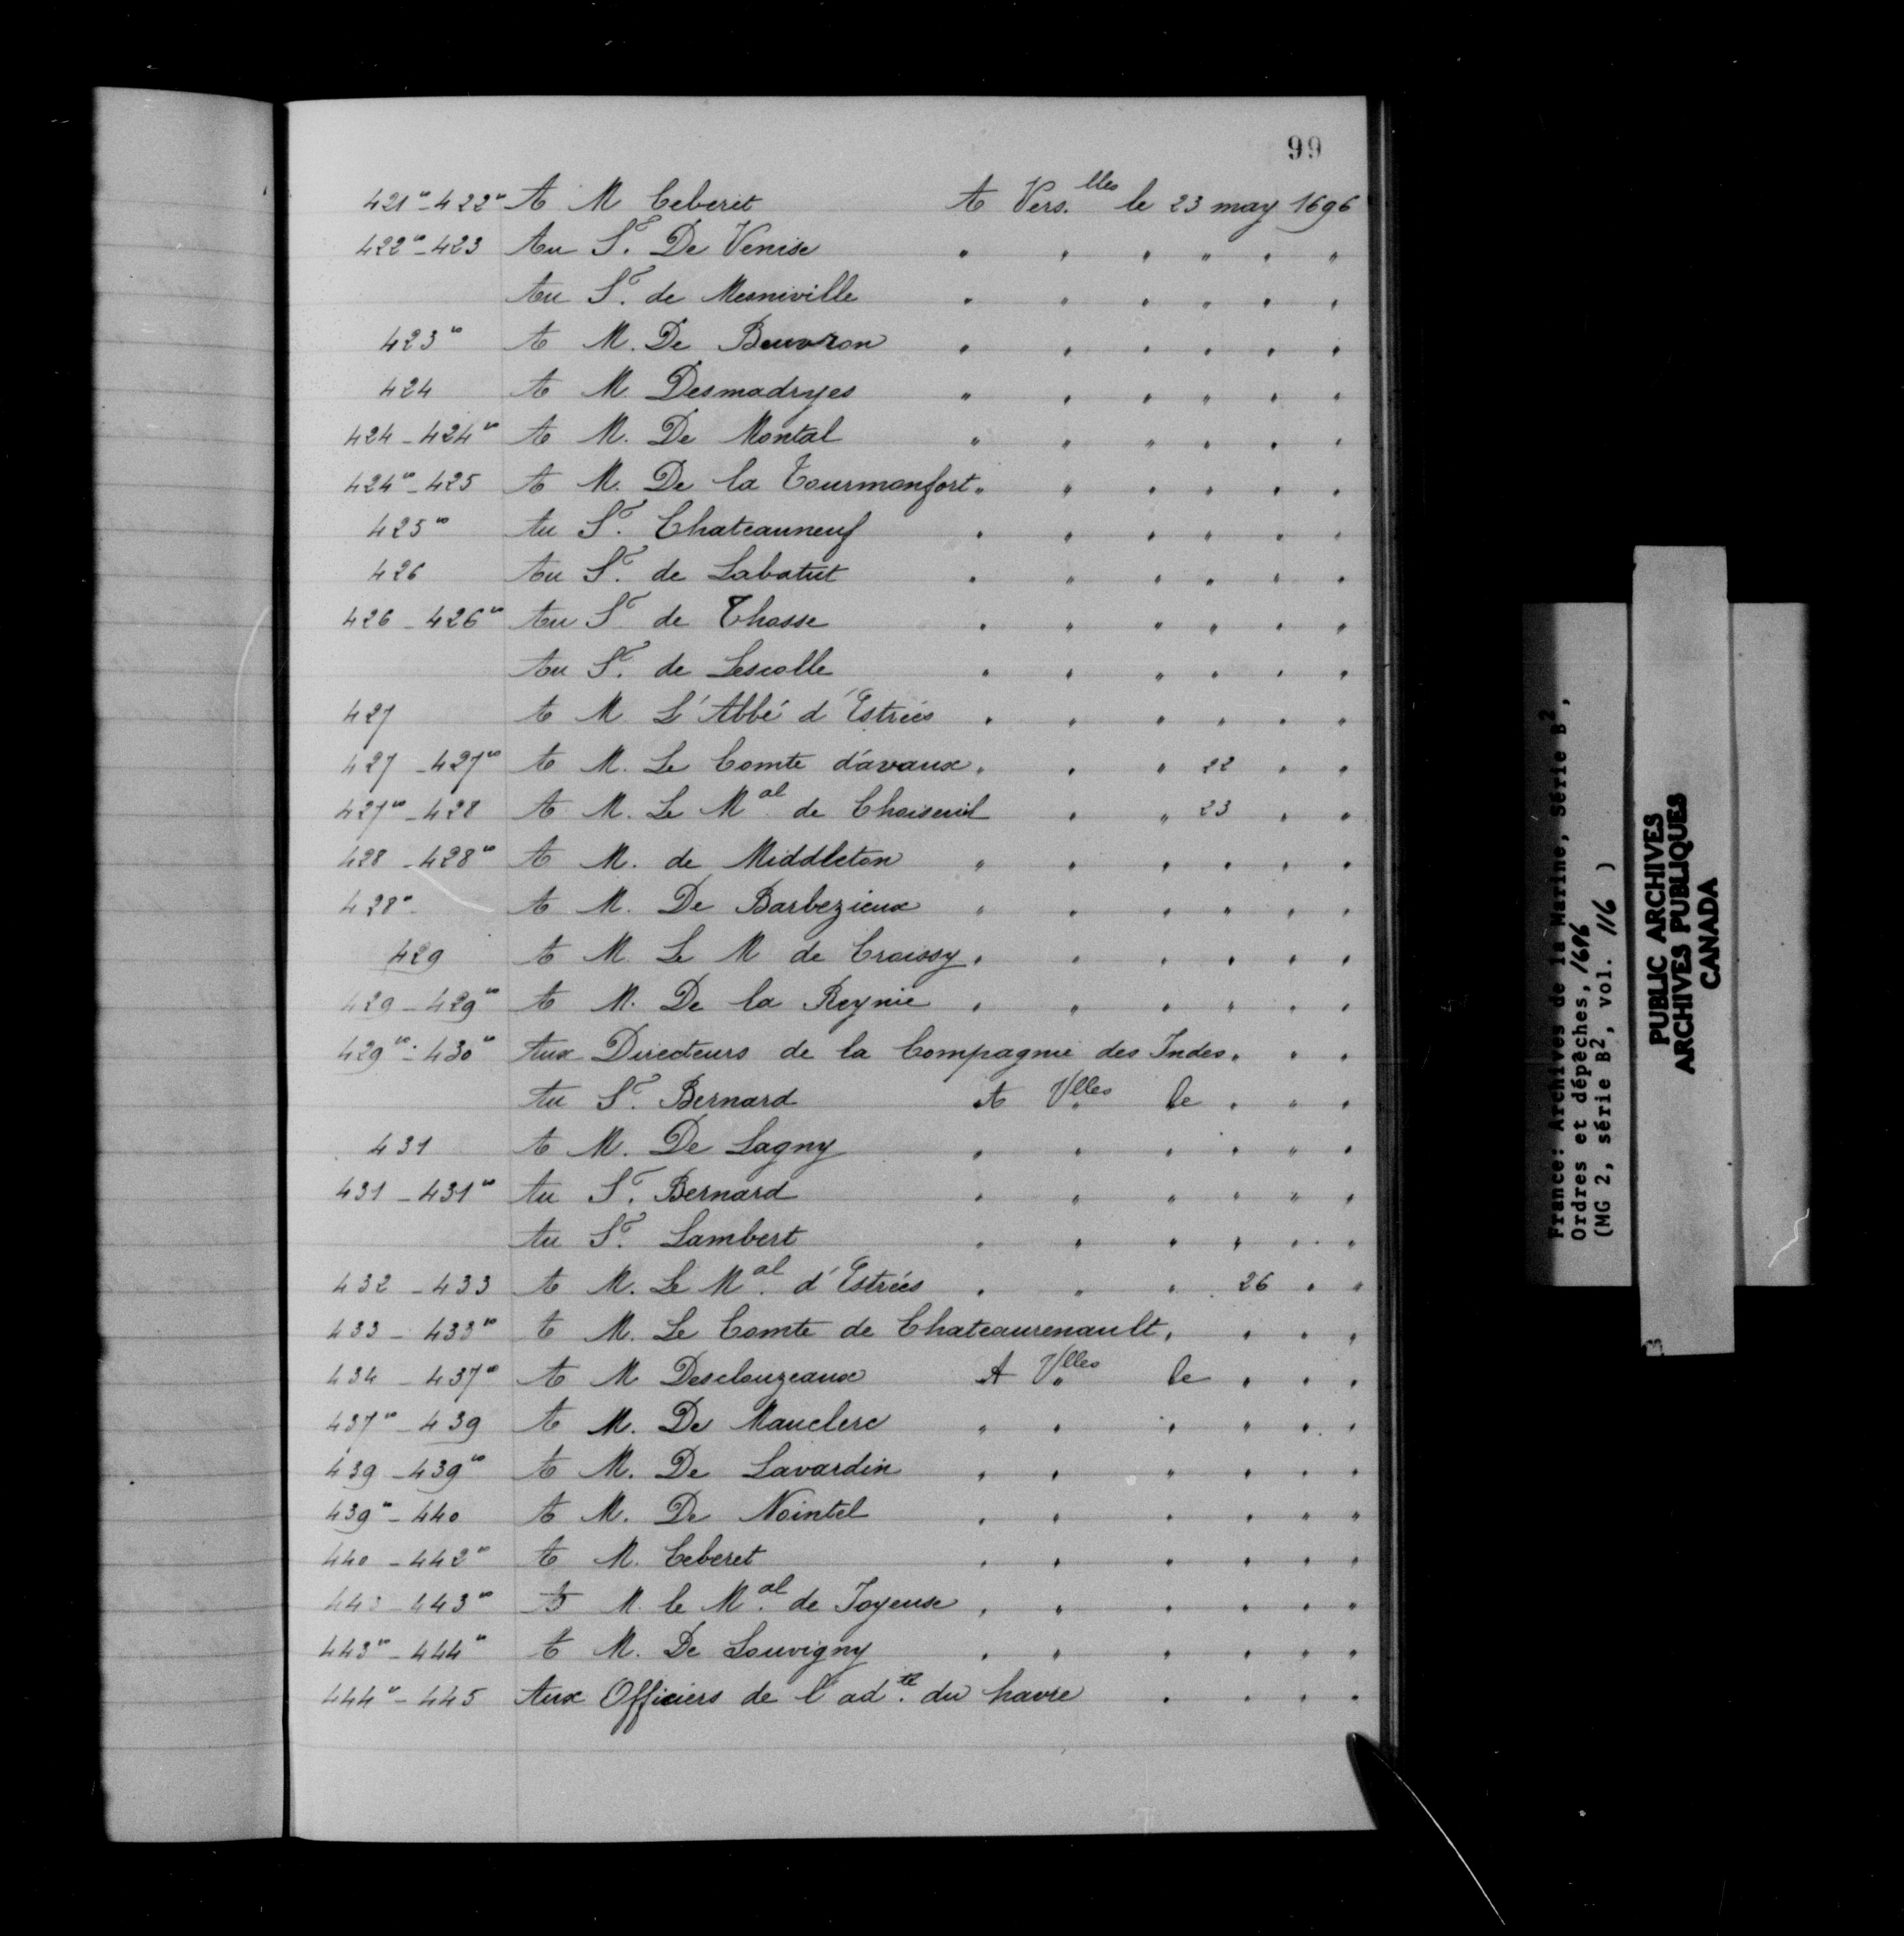 99
421vo-422vo A M Ceberet A Vers.lles le 23 may 1696
422vo-423 Au Sr. De Venise " " " " " "
Au Sr. de Mesniville " " " " " "
423vo A M. De Beuvron " " " " " "
424 A M. Desmadryes " " " " " "
424-424vo A M. De Montal " " " " " "
424vo-425 A M. De la Tourmonfort " " " " " "
425vo Au Sr. Chateauneuf " " " " " "
426 Au Sr. de Labatut " " " " " "
426-426vo Au Sr. de Thosse " " " " " "
Au Sr. de Lescolle " " " " " "
427 A M L'Abbé d'Estrées " " " " " "
427-427vo A M. Le Comte d'avaux " " " 22 " "
427vo-428 A M. Le Mal de Choiseuil " " 23 " "
428-428vo A M. de Middleton " " " " " "
428vo A M. De Barbezieux " " " " " "
429 A M. Le M de Croissy " " " " " "
429-429vo A M. De la Reynie " " " " " "
429vo-430vo Aux Directeurs de la Compagnie des Indes " " "
Au Sr. Bernard A Vlles le " " "
431 A M. De Lagny " " " " " "
431-431vo Au Sr. Bernard " " " " " "
Au Sr. Lambert " " " " " "
432-433 A M. Le Mal. d'Estrées " " " 26 " "
433-433vo A M. Le Comte de Chateaurenault " " " "
434-437vo A M Desclouzeaux A Vlles le " " "
437vo-439 A M. De Mauclerc " " " " " "
439-439vo A M. De Lavardin " " " " " "
439vo-440 A M. De Nointel " " " " " "
440-442vo A M. Ceberet " " " " " "
443-443vo A M. le Mal. de Joyeuse " " " " " "
443vo-444vo A M. De Louvigny " " " " " "
444vo-445 Aux Officiers de l'adté. du havre " " " "
France: Archives de la Marine, Série B2,
Ordres et dépêches, 1696
(MG 2, série B2, vol. 116 )
PUBLIC ARCHIVES
ARCHIVES PUBLIQUES
CANADA